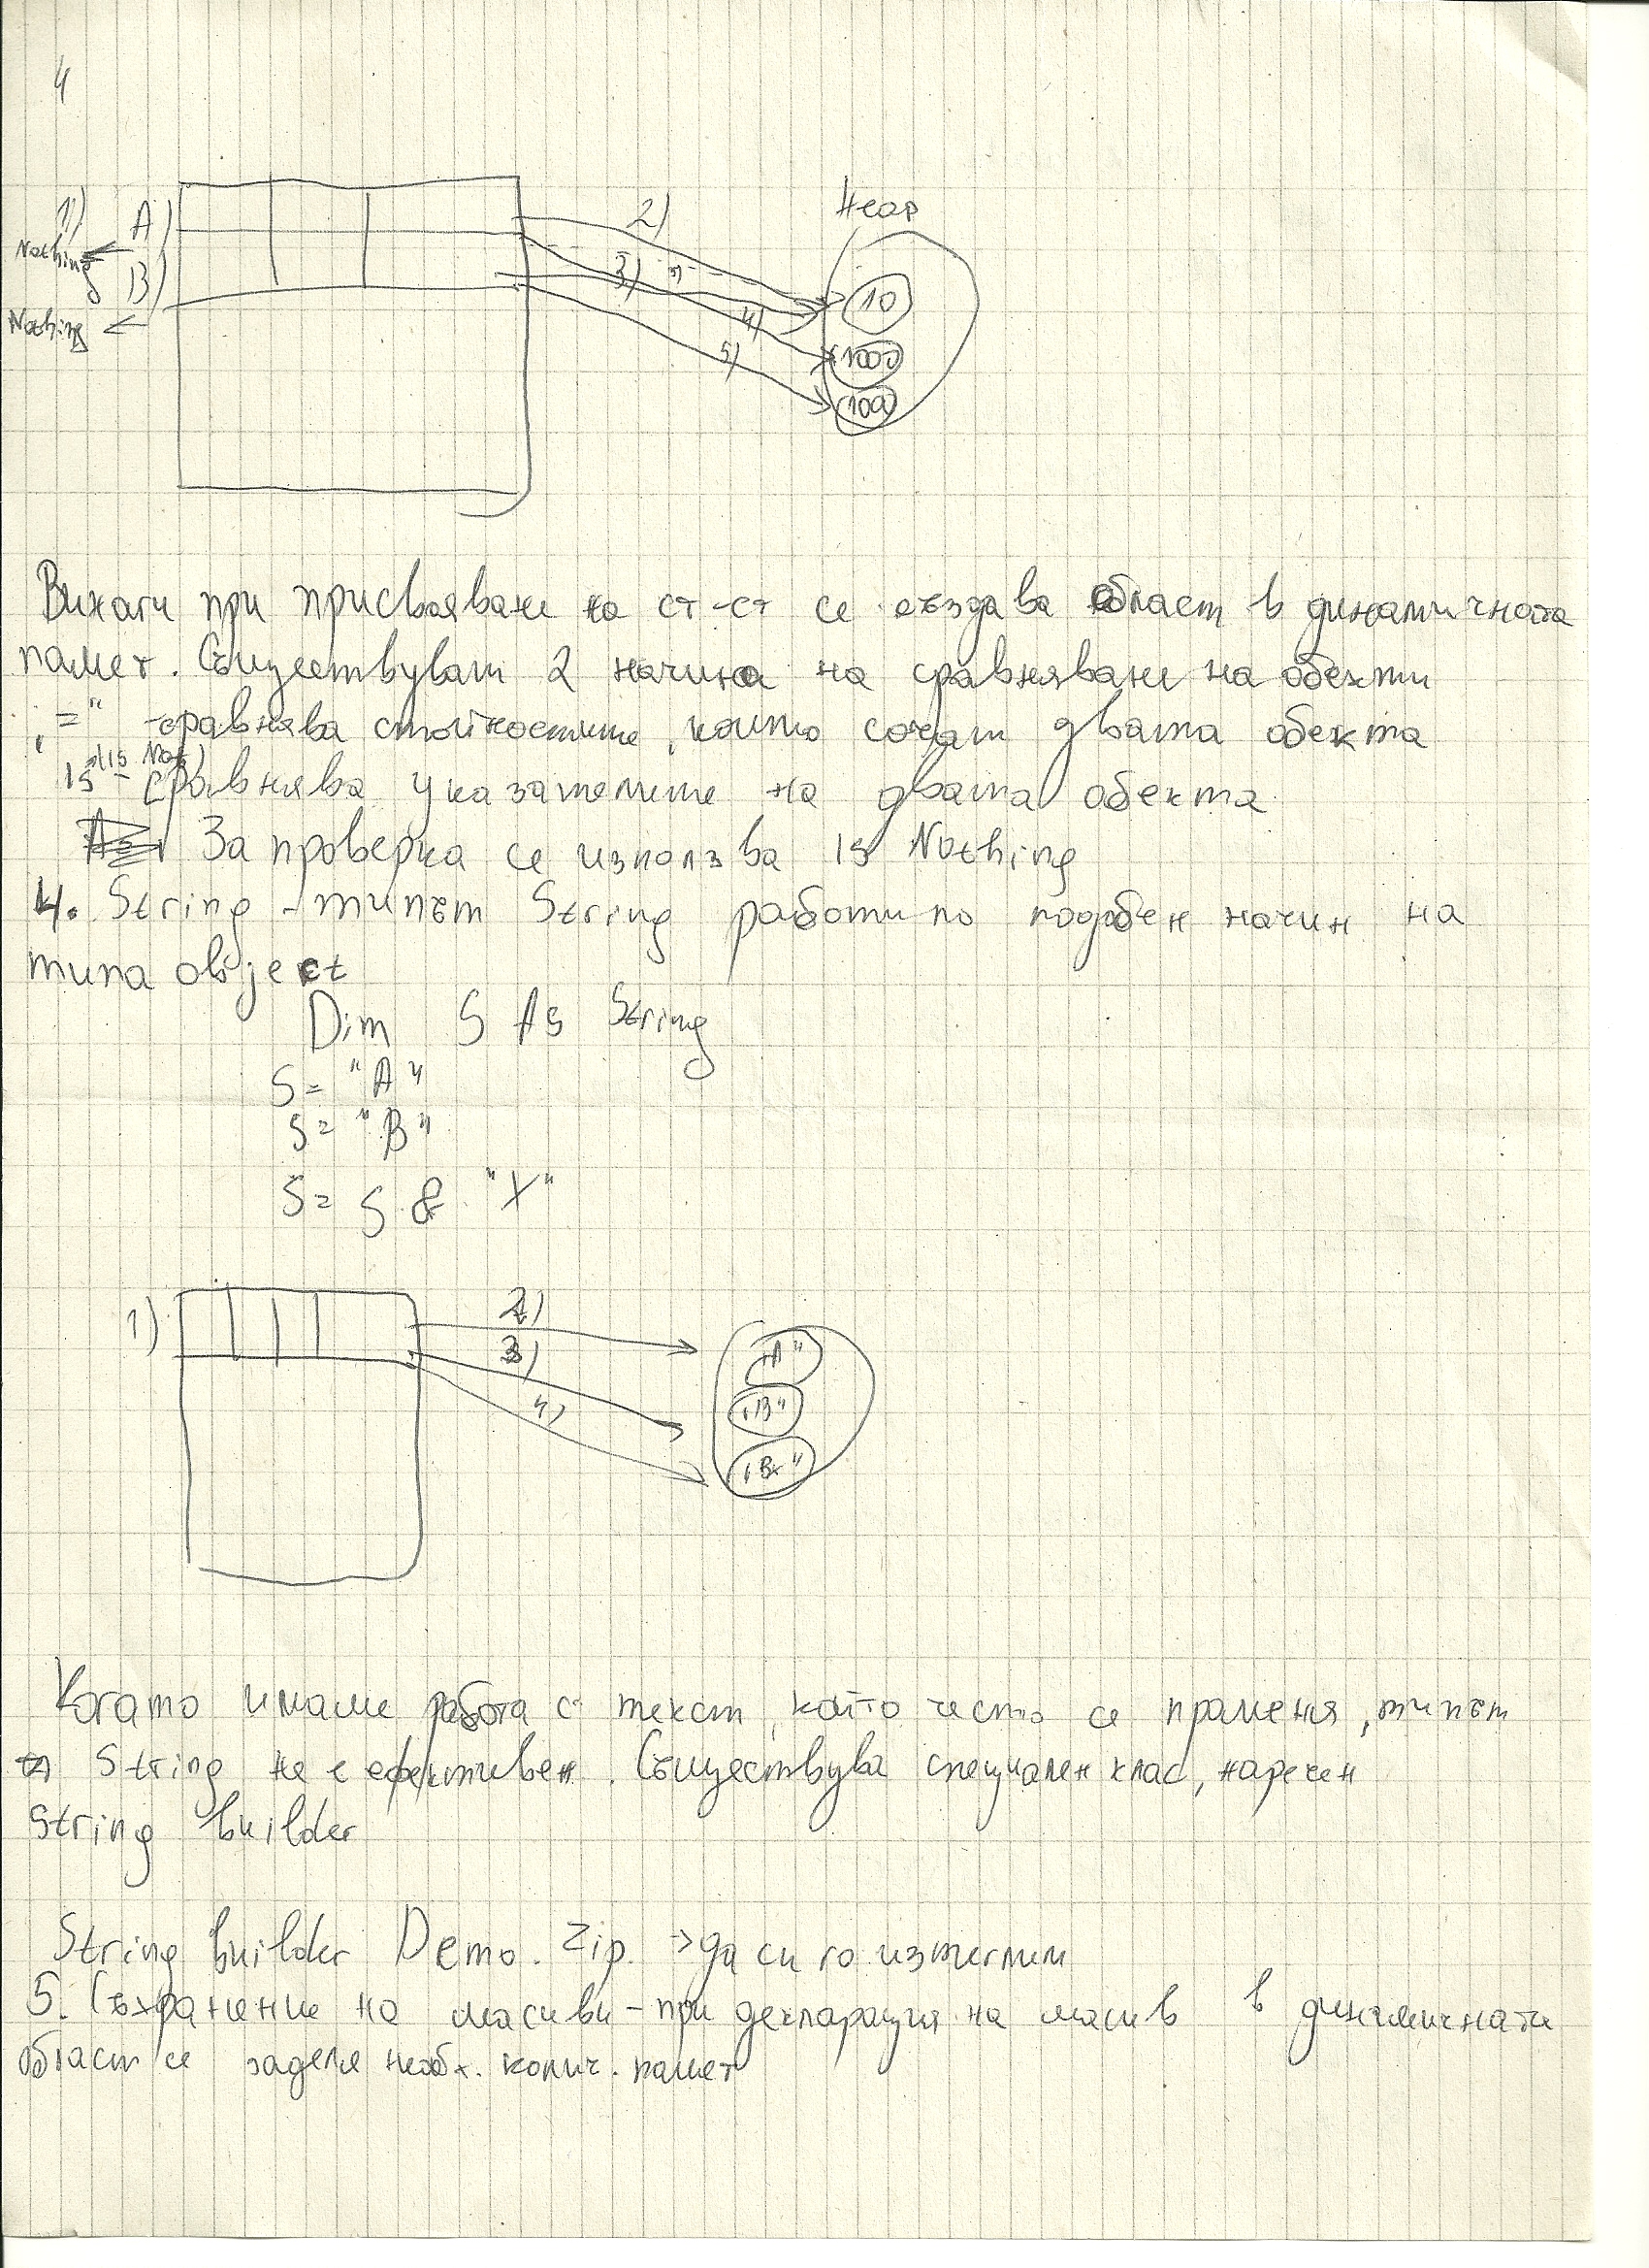 4
1) A) 2) Heap
Nothing 3) 3) 10
B) 4) 1000
Nothing 5) 100
Винаги при присвояване на ст-ст се създава област в динамичната
памет. Съществуват 2 начина на сравняване на обекти
"=" - сравнява стойностите, които сочат двата обекта
(Is Not)
Is - сравнява указателите на двата обекта
За проверка се използва Is Nothing
4. String - типът String работи по подобен начин на
типа object
Dim S As String
S = "A"
S = "B"
S = S & "X"
1) 2) "A"
3) "B"
4) "Bx"
Когато имаме работа с текст, който често се променя, типът
String не е ефективен. Съществува специален клас, наречен
String builder
String builder Demo. Zip. → да си го изтеглим
5. Съхранение на масиви - при декларация на масив в динамичната
област се заделя необх. колич. памет